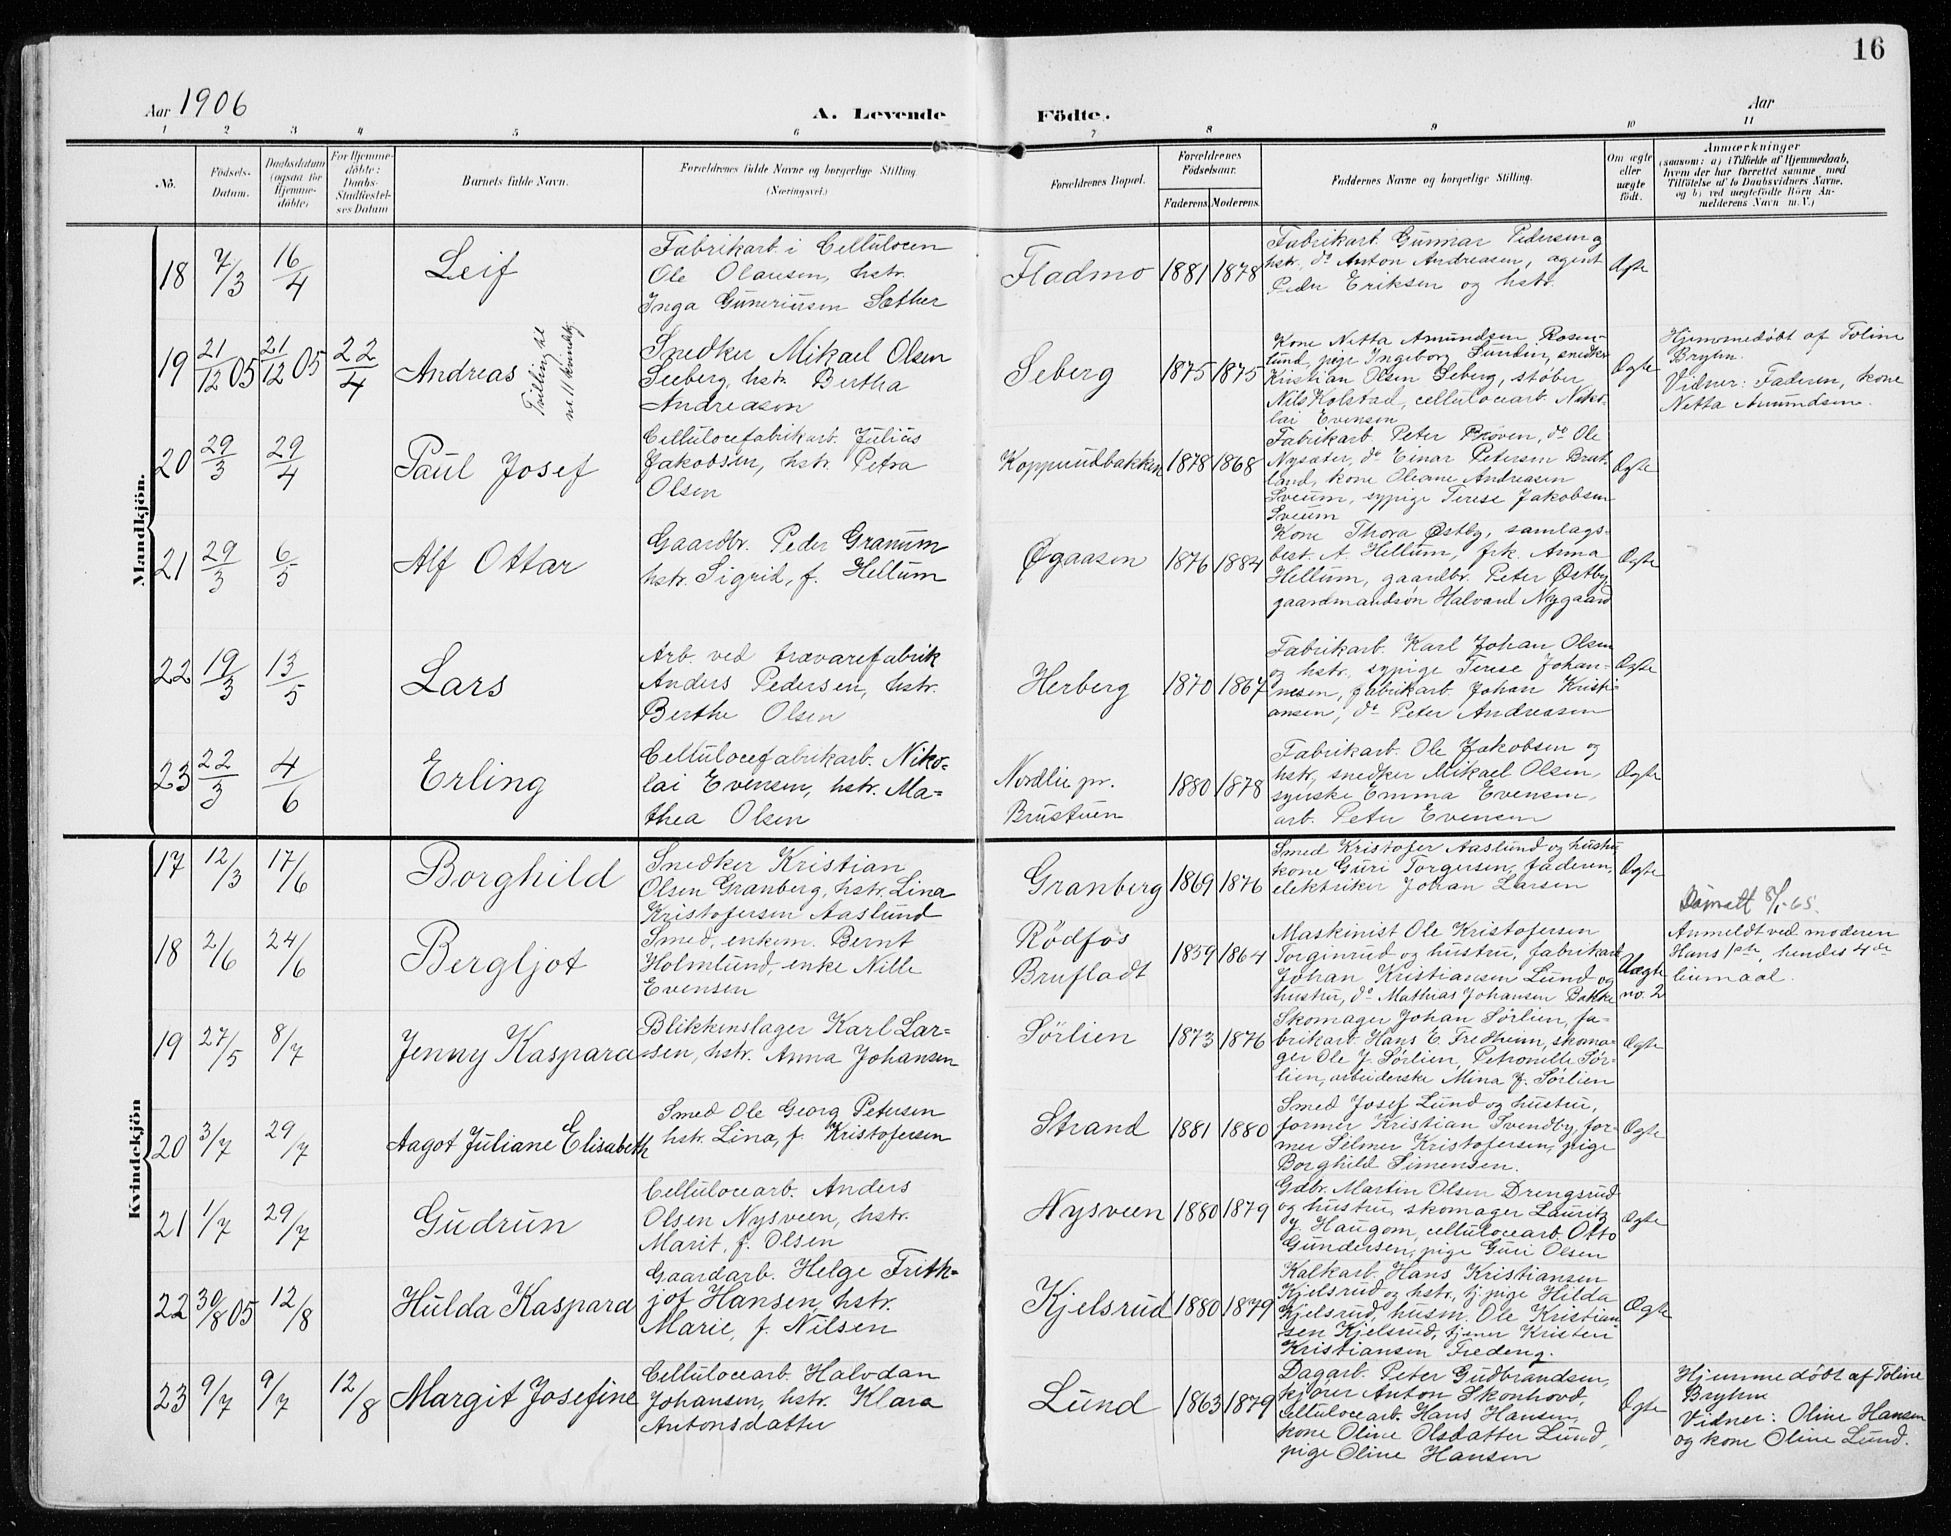 16
Aar 1906
A. Levende Födte.
Aar
1 2 3 4 5 6 7 8 9 10 11
No.
Födsels-
Datum.
Daabsdatum
(ogsaa for
Hjemme-
döbte)
For Hjemme-
döbte:
Daabs-
Stadfæstel-
ses Datum
Barnets fulde Navn.
Forældrenes fulde Navne og borgerlige Stilling
(Næringsvei.)
Forældrenes Bopæl.
Forældrenes
Födselsaar.
Faderens. Moderens.
Faddernes Navne og borgerlige Stilling.
Om ægte
eller
uægte
födt.
Anmærkninger
(saasom: a) i Tilfælde af Hjemmedaab,
hvem der har forrettet samme, med
Tilföielse af to Daabsvidners Navne,
og b) ved uægtefödte Börn An-
melderens Navn m. V.)
Mandkjön.
18 7/3 16/4 Leif
Fabrikarb. i Cellulocen
Ole Olausen, hstr.
Inga Guneriusen Sæther
Fladmo 1881 1878
Fabrikarb. Gunnar Pedersen og
hstr. do Anton Andreasen, agent
Peder Eriksen og hstr.
Ægte
19 21/12 05 21/12 05 22/4 Andreas
Tvilling til
no 11 kvindekj
Snedker Mikael Olsen
Seeberg, hstr. Bertha
Andreasen
Seberg 1875 1875
Kone Netta Amundsen Rosen-
lund, pige Ingeborg Lunden, snedker
Kristian Olsen Seberg, støber
Nils Kolstad, cellulocearb. Niko-
lai Evensen
Ægte
Hjemmedøbt af Toline
Bryhn.
Vidner: Faderen, kone
Netta Amundsen.
20 29/3 29/4 Paul Josef
Cellulocefabrikarb. Julius
Jakobsen, hstr. Petra
Olsen
Koppruudbakken 1878 1868
Fabrikarb. Peter Prøven, do Ole
Nysæter, do Einar Petersen Brat-
land, kone Oleane Andreasen
Sveum, sypige Terese Jakobsen
Sveum
Ægte
21 29/3 6/5 Alf Ottar
Gaardbr. Peder Granum
hstr. Sigrid, f. Hellum
Øgaasen 1876 1884
Kone Thora Østby, samlags-
best. A. Hellum, frk. Anna
Hellum, gaardbr. Peter Østby,
gaardmandsøn Halvard Nygaard
Ægte
22 19/3 13/5 Lars
Arb. ved trævarefabrik
Anders Pedersen, hstr.
Berthe Olsen
Herberg 1870 1867
Fabrikarb. Karl Johan Olsen
og hstr., sypige Terese Johan-
nesen, fabrikarb. Johan Kristi-
ansen, do Peter Andreasen
Ægte
23 22/3 4/6 Erling
Cellulocefabrikarb. Niko-
lai Evensen, hstr. Ma-
thea Olsen
Nordlie pr.
Brustuen
1880 1878
Fabrikarb. Ole Jakobsen og
hstr, snedker Mikael Olsen,
syerske Emma Evensen,
arb. Peter Evensen
Ægte
Kvindekjön
17 12/3 17/6 Borghild
Snedker Kristian
Olsen Granberg, hstr. Lina
Kristofersen Aaslund
Granberg 1869 1876
Smed Kristofer Aaslund og hustru
kone Guri Torgersen, faderen,
elektriker Johan Larsen
Ægte
18 2/6 24/6 Bergljot
Smed, enkem. Bernt
Holmlund, enke Nille
Evensen
Rødfos
Brufladt
1859 1864
Maskinist Ole Kristofersen
Torgenrud og hustru, fabrikarb
Johan Kristiansen Lund og
hustru, do Mathias Johansen Bakke
Uægte
no. 2
8/1-65.
Anmeldt ved moderen
Hans 1ste, hendes 4de
leiemaal.
19 27/5 8/7 Jenny Kaspara
Blikkenslager Karl Lar-
sen, hstr. Anna Johansen
Sørlien 1873 1876
Skomager Johan Sørlien, fa-
brikarb. Hans E. Fredheim, skoma-
ger Ole J. Sørlien, Petronelle Sør-
lien, arbeiderske Mina J. Sørlien
Ægte
20 3/7 29/7 Aagot Juliane Elisabeth
Smed Ole Georg Petersen
hstr. Lina, f. Kristofersen
Strand 1881 1880
Smed Josef Lund og hustru,
former Kristian Svendby, for-
mer Selmer Kristofersen, pige
Borghild Simensen.
Ægte
21 1/7 29/7 Gudrun
Cellulocearb. Anders
Olsen Nysveen, hstr.
Marit, f. Olsen
Nysveen 1880 1879
Gdbr. Martin Olsen Drengsrud
og hustru, skomager Lauritz
J. Haugom, cellulocearb. Otto
Gundersen, pige Guri Olsen
Ægte
22 30/8 05 12/8 Hulda Kaspara
Gaardarb. Helge Frith-
jof Hansen, hstr.
Marie, f. Nilsen
Kjelsrud 1880 1879
Kalkarb. Hans Kristiansen
Kjelsrud og hstr, tj. pige Hilda
Kjelsrud, husm. Ole Kristian-
sen Kjelsrud, tjener Kristen
Kristiansen Fredeng.
Ægte
23 9/7 9/7 12/8 Margit Josefine
Cellulocearb. Halvdan
Johansen, hstr. Klara
Antonsdatter
Lund 1863 1879
Dagarb. Peter Gudbrandsen,
kjører Anton Skonhovd,
cellulocearb. Hans Hansen,
kone Oline Olsdatter Lund,
pige Oline Hansen
Ægte
Hjemmedøbt af Toline
Bryhn
Vidner: Oline Hansen
og kone Oline Lund.